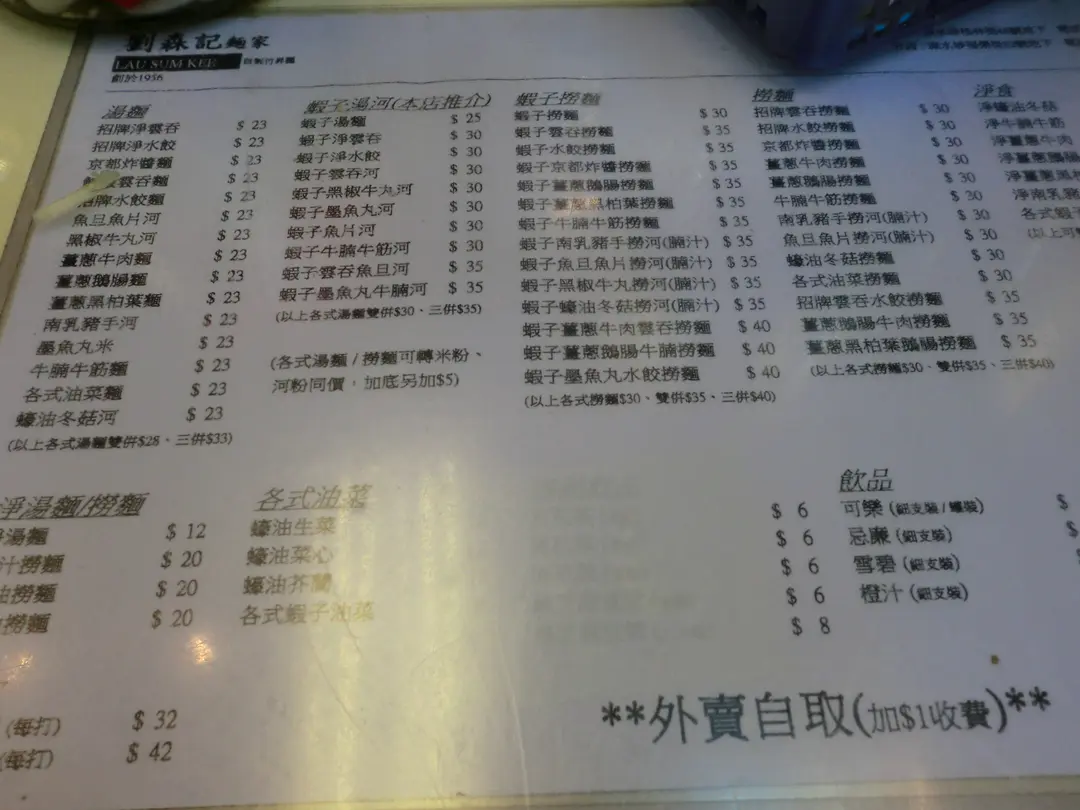 劉森記麵家
LAU SUM KEE
創於1956
湯麵
招牌淨雲吞 $ 23
招牌淨水餃 $ 23
京都炸醬麵 $ 23
雲吞麵 $ 23
招牌水餃麵 $ 23
魚旦魚片河 $ 23
黑椒牛丸河 $ 23
薑蔥牛肉麵 $ 23
薑蔥鵝腸麵 $ 23
薑蔥黑柏葉麵 $ 23
南乳豬手河 $ 23
墨魚丸米 $ 23
牛腩牛筋麵 $ 23
各式油菜麵 $ 23
蠔油冬菇河 $ 23
(以上各式湯麵雙併$28、三併$33)
蝦子湯河(本店推介)
蝦子湯麵 $ 25
蝦子淨雲吞 $ 30
蝦子淨水餃 $ 30
蝦子雲吞河 $ 30
蝦子黑椒牛丸河 $ 30
蝦子墨魚丸河 $ 30
蝦子魚片河 $ 30
蝦子牛腩牛筋河 $ 30
蝦子雲吞魚旦河 $ 35
蝦子墨魚丸牛腩河 $ 35
(以上各式湯麵雙併$30、三併$35)
(各式湯麵 / 撈麵可轉米粉、
河粉同價，加底另加$5)
蝦子撈麵
蝦子撈麵 $ 30
蝦子雲吞撈麵 $ 35
蝦子水餃撈麵 $ 35
蝦子京都炸醬撈麵 $ 35
蝦子薑蔥鵝腸撈麵 $ 35
蝦子薑蔥黑柏葉撈麵 $ 35
蝦子牛腩牛筋撈麵 $ 35
蝦子南乳豬手撈河(腩汁) $ 35
蝦子魚旦魚片撈河(腩汁) $ 35
蝦子黑椒牛丸撈河(腩汁) $ 35
蝦子蠔油冬菇撈河(腩汁) $ 35
蝦子薑蔥牛肉雲吞撈麵 $ 40
蝦子薑蔥鵝腸牛腩撈麵 $ 40
蝦子墨魚丸水餃撈麵 $ 40
(以上各式撈麵$30、雙併$35、三併$40)
撈麵
招牌雲吞撈麵 $ 30
招牌水餃撈麵 $ 30
京都炸醬撈麵 $ 30
薑蔥牛肉撈麵 $ 30
薑蔥鵝腸撈麵 $ 30
牛腩牛筋撈麵 $ 30
南乳豬手撈河(腩汁) $ 30
魚旦魚片撈河(腩汁) $ 30
蠔油冬菇撈麵 $ 30
各式油菜撈麵 $ 30
招牌雲吞水餃撈麵 $ 35
薑蔥鵝腸牛肉撈麵 $ 35
薑蔥黑柏葉鵝腸撈麵 $ 35
(以上各式撈麵$30、雙併$35、三併$40)
淨食
淨蠔油冬菇
淨牛腩牛筋
淨薑蔥牛肉
淨薑蔥鵝
淨薑蔥黑柏
淨南乳豬
各式蝦子
(以上可
淨湯麵/撈麵
湯麵 $ 12
汁撈麵 $ 20
油撈麵 $ 20
撈麵 $ 20
(每打) $ 32
(每打) $ 42
各式油菜
蠔油生菜
蠔油菜心
蠔油芥蘭
各式蝦子油菜
$ 6
$ 6
$ 6
$ 6
$ 8
飲品
可樂 (細支裝 / 罐裝)
忌廉 (細支裝)
雪碧 (細支裝)
橙汁 (細支裝)
**外賣自取(加$1收費)**